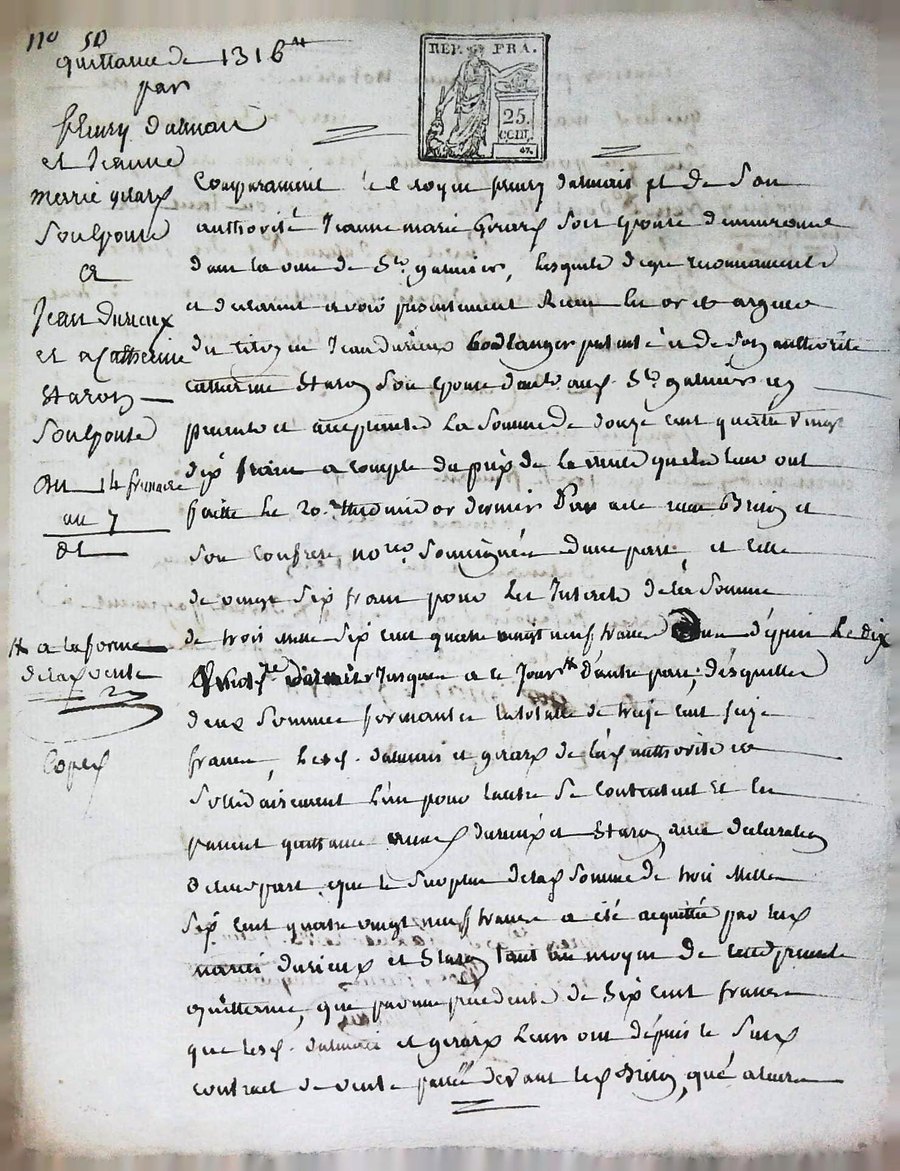 no 50
quittance de 1316 #
par
fleury dalmais
et Jeanne
marie gerard
son épouse
a
Jean durieux
et a Catherine
Staron
son épouse
du 14 frimaire
an 7
REP. FRA.
25.
CCIII.
Comparaissent le Citoyen fleury dalmais et de Son
authorité Jeanne marie Gerard Son épouse demeurant
dans la ville de St. galmier, lesquels de gré reconnaissent
et declarent avoir présentement Recu en or et argent
du citoyen Jean durieux boulanger patenté et de Son authorité
Catherine Staron Son épouse dud. St. galmier icy
presents et acceptants La Somme de douze cent quatre vingt
dix francs a compte du prix de la vente qu'ils leur ont
faitte le 20. thermidor dernier Par acte recu Brion et
Son Confrere no.res Soussignés d'une part et celle
de vingt Six francs pour les Interets de la Somme
de trois mille Six cent quatre vingt neuf francs depuis Le dix
dernier Jusques a ce Jour # d'autre part, desquelles
deux Sommes formant la totalle de treize cent seize
francs, Lesd. dalmais et gerard de lad. authorité et
Solidairement l'un pour l'autre Se Contentent Et en
passent quittance auxd. durieux et Staron, avec declaration
de leur part que le Surplus de lad. Somme de trois Mille
Six cent quatre vingt neuf francs a été acquittée par lesd.
mariés durieux et Staron tant au moyen de cette presente
quittance, que par une precedente de Six cent francs
que lesd. dalmais et gerard Leurs ont dépuis le Susd.
contract de vente passée devant led. Brion, qué a leur
# a la forme
de lad. vente
Copié